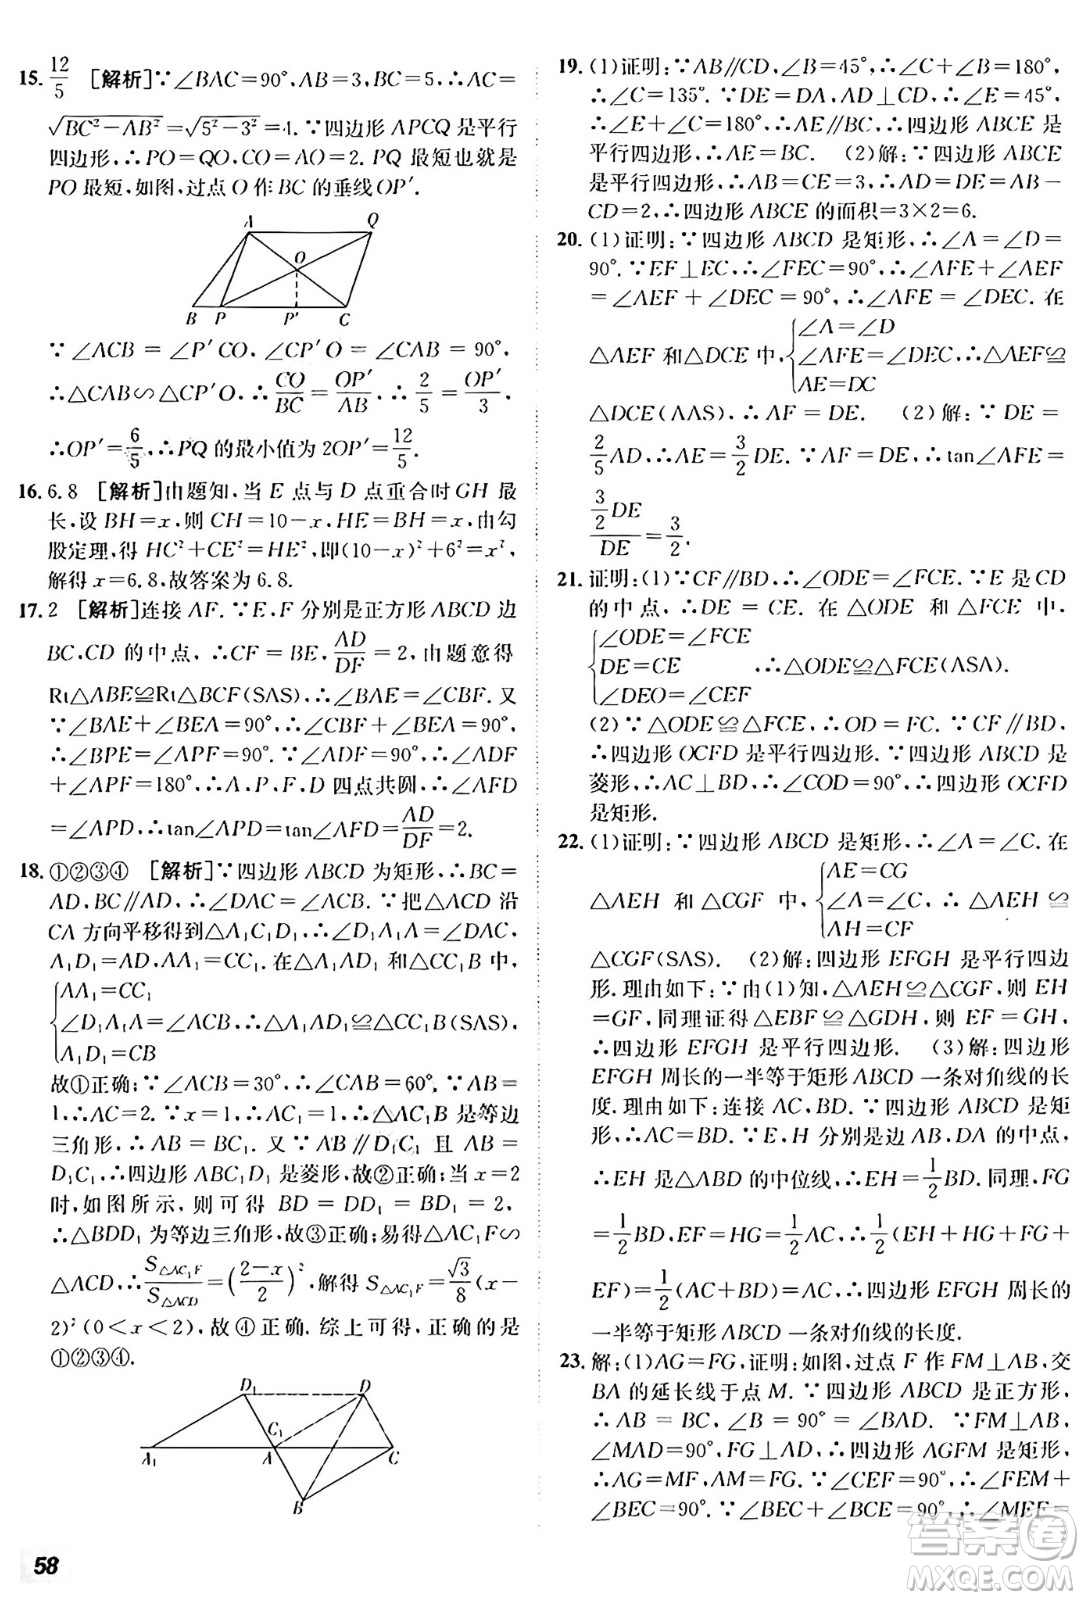 15. 12/5 [解析]∵∠BAC=90°,AB=3,BC=5,∴AC=
√(BC²-AB²)=√(5²-3²)=4.∵四边形 APCQ 是平行
四边形,∴PO=QO,CO=AO=2. PQ 最短也就是
PO 最短,如图,过点 O 作 BC 的垂线 OP′.
A Q
O
B P P′ C
∵∠ACB=∠P′CO,∠CP′O=∠CAB=90°,
∴△CAB∽△CP′O.∴CO/BC=OP′/AB,∴2/5=OP′/3,
∴OP′=6/5,∴PQ 的最小值为 2OP′=12/5.
16. 6.8 [解析]由题知,当 E 点与 D 点重合时 GH 最
长,设 BH=x,则 CH=10-x,HE=BH=x,由勾
股定理,得 HC²+CE²=HE²,即(10-x)²+6²=x²,
解得 x=6.8,故答案为 6.8.
17. 2 [解析]连接 AF.∵E,F 分别是正方形 ABCD 边
BC,CD 的中点,∴CF=BE,AD/DF=2,由题意得
Rt△ABE≌Rt△BCF(SAS),∴∠BAE=∠CBF.又
∵∠BAE+∠BEA=90°,∴∠CBF+∠BEA=90°,
∴∠BPE=∠APF=90°.∵∠ADF=90°,∴∠ADF
+∠APF=180°,∴A,P,F,D 四点共圆,∴∠AFD
=∠APD,∴tan∠APD=tan∠AFD=AD/DF=2.
18. ①②③④ [解析]∵四边形 ABCD 为矩形,∴BC=
AD,BC∥AD,∴∠DAC=∠ACB.∵把△ACD 沿
CA 方向平移得到△A₁C₁D₁,∴∠A₁=∠DAC,
A₁D₁=AD,AA₁=CC₁.在△A₁AD₁ 与△CC₁B 中,
{AA₁=CC₁
∠D₁A₁A=∠ACB,∴△A₁AD₁≌△CC₁B(SAS),
A₁D₁=CB
故①正确;∵∠ACB=30°,∴∠CAB=60°.∵AB=
1,∴AC=2.∵x=1,∴AC₁=1,∴△AC₁B 是等边
三角形,∴AB=BC₁.又∵AB∥D₁C₁ 且 AB=
D₁C₁,∴四边形 ABC₁D₁ 是菱形,故②正确;当 x=2
时,如图所示,则可得 BD=DD₁=BD₁=2,
∴△BDD₁ 为等边三角形,故③正确;∵△AC₁F∽
△ACD,∴S△AC₁F/S△ACD=((2-x)/2)²,解得 S△AC₁F=√3/8(x-
2)²(0<x<2),故④正确.综上可得,正确的是
①②③④.
D₁ D
C₁
A₁ A C
B
58
19. (1)证明:∵AB∥CD,∠B=45°,∴∠C+∠B=180°,
∴∠C=135°.∵DE=DA,AD⊥CD,∴∠E=45°,
∴∠E+∠C=180°,∴AE∥BC.∴四边形 ABCE 是
平行四边形,∴AE=BC. (2)解:∵四边形 ABCE
是平行四边形,∴AB=CE=3,∴AD=DE=AB-
CD=2,∴四边形 ABCE 的面积=3×2=6.
20. (1)证明:∵四边形 ABCD 是矩形,∴∠A=∠D=
90°.∵EF⊥EC,∴∠FEC=90°,∴∠AFE+∠AEF
=∠AEF+∠DEC=90°,∴∠AFE=∠DEC.在
△AEF 和△DCE 中,{∠A=∠D
∠AFE=∠DEC,∴△AEF≌
AE=DC
△DCE(AAS),∴AF=DE. (2)解:∵DE=
2/5AD,∴AE=3/2DE.∴AF=DE,∴tan∠AFE=
(3/2DE)/DE=3/2.
21. 证明:(1)∵CF∥BD,∴∠ODE=∠FCE.∵E 是 CD
的中点,∴DE=CE.在△ODE 和△FCE 中,
{∠ODE=∠FCE
DE=CE ∴△ODE≌△FCE(ASA).
∠DEO=∠CEF
(2)∵△ODE≌△FCE,∴OD=FC.∵CF∥BD,
∴四边形 OCFD 是平行四边形.∵四边形 ABCD 是
菱形,∴AC⊥BD,∴∠COD=90°,∴四边形 OCFD
是矩形.
22. (1)证明:∵四边形 ABCD 是矩形,∴∠A=∠C.在
△AEH 和△CGF 中,{AE=CG
∠A=∠C,∴△AEH≌
AH=CF
△CGF(SAS). (2)解:四边形 EFGH 是平行四边
形.理由如下:∵由(1)知,△AEH≌△CGF,则 EH
=GF,同理证得△EBF≌△GDH,则 EF=GH,
∴四边形 EFGH 是平行四边形. (3)解:四边形
EFGH 周长的一半等于矩形 ABCD 一条对角线的长
度.理由如下:连接 AC,BD.∵四边形 ABCD 是矩
形,∴AC=BD.∵E,H 分别是边 AB,DA 的中点,
∴EH 是△ABD 的中位线,∴EH=1/2BD.同理,FG
=1/2BD,EF=HG=1/2AC,∴1/2(EH+HG+FG+
EF)=1/2(AC+BD)=AC,∴四边形 EFGH 周长的
一半等于矩形 ABCD 一条对角线的长度.
23. 解:(1)AG=FG,证明:如图,过点 F 作 FM⊥AB,交
BA 的延长线于点 M.∵四边形 ABCD 是正方形,
∴AB=BC,∠B=90°=∠BAD.∵FM⊥AB,
∠MAD=90°,FG⊥AD,∴四边形 AGFM 是矩形,
∴AG=MF,AM=FG.∵∠CEF=90°,∴∠FEM+
∠BEC=90°.∵∠BEC+∠BCE=90°,∴∠MEF=
答案圈
MXQE.COM